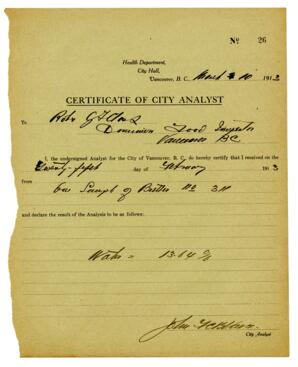 No 26
Health Department,
City Hall,
Vancouver, B. C., March 10 1913
CERTIFICATE OF CITY ANALYST
To Robt
Dominion Food Inspector
Vancouver BC
I, the undersigned Analyst for the City of Vancouver, B. C., do hereby certify that I received on the
twenty-fifth day of February 1913
from
One Sample of Butter No 311
and declare the result of the Analysis to be as follows:
Water = 13.64 %
John
City Analyst